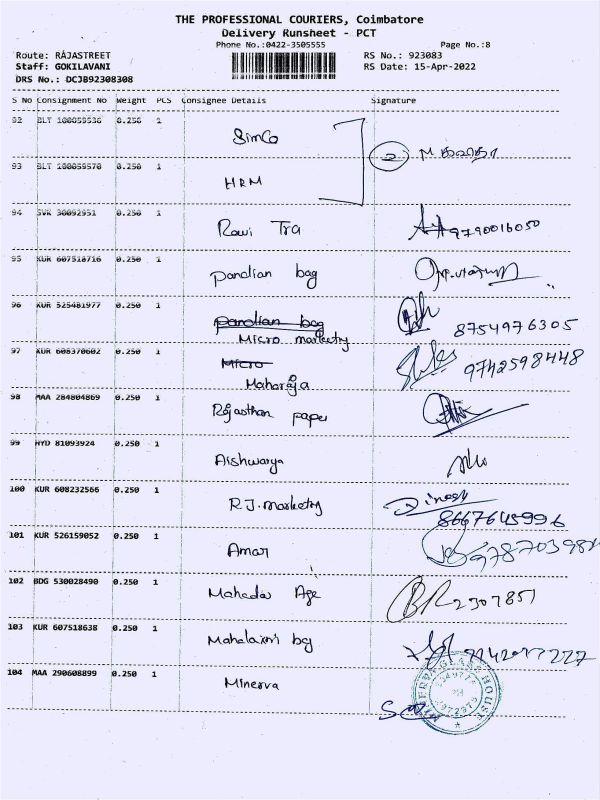 THE PROFESSIONAL COURIERS, Coimbatore
Delivery Runsheet - PCT
Phone No.:0422-3505555
Page No.:8
Route: RAJASTREET
Staff: GOKILAVANI
DRS No.: DCJB92308308
RS No.: 923083
RS Date: 15-Apr-2022
S No Consignment No Weight PCS Consignee Details Signature
92 BLT 100059536 0.250 1 Simco
2
93 BLT 100059570 0.250 1 HRM
94 SVR 30092951 0.250 1 Ravi Tra 9790016050
95 KUR 607518716 0.250 1 Pandian bag
96 KUR 525481977 0.250 1 Pandian bag
Micro marketry 8754976305
97 KUR 608370602 0.250 1 Micro
Maharaja 9742598448
98 MAA 284804869 0.250 1 Rajasthan paper
99 HYD 81093924 0.250 1 Aishwarya
100 KUR 608232566 0.250 1 R.J. marketry Dinesh
8667645996
101 KUR 526159052 0.250 1 Amar
102 BDG 530028490 0.250 1 Mahadev Age 2307851
103 KUR 607518638 0.250 1 Mahalaxmi bag
104 MAA 290608899 0.250 1 Minerva
MINERVA GLASS HOUSE